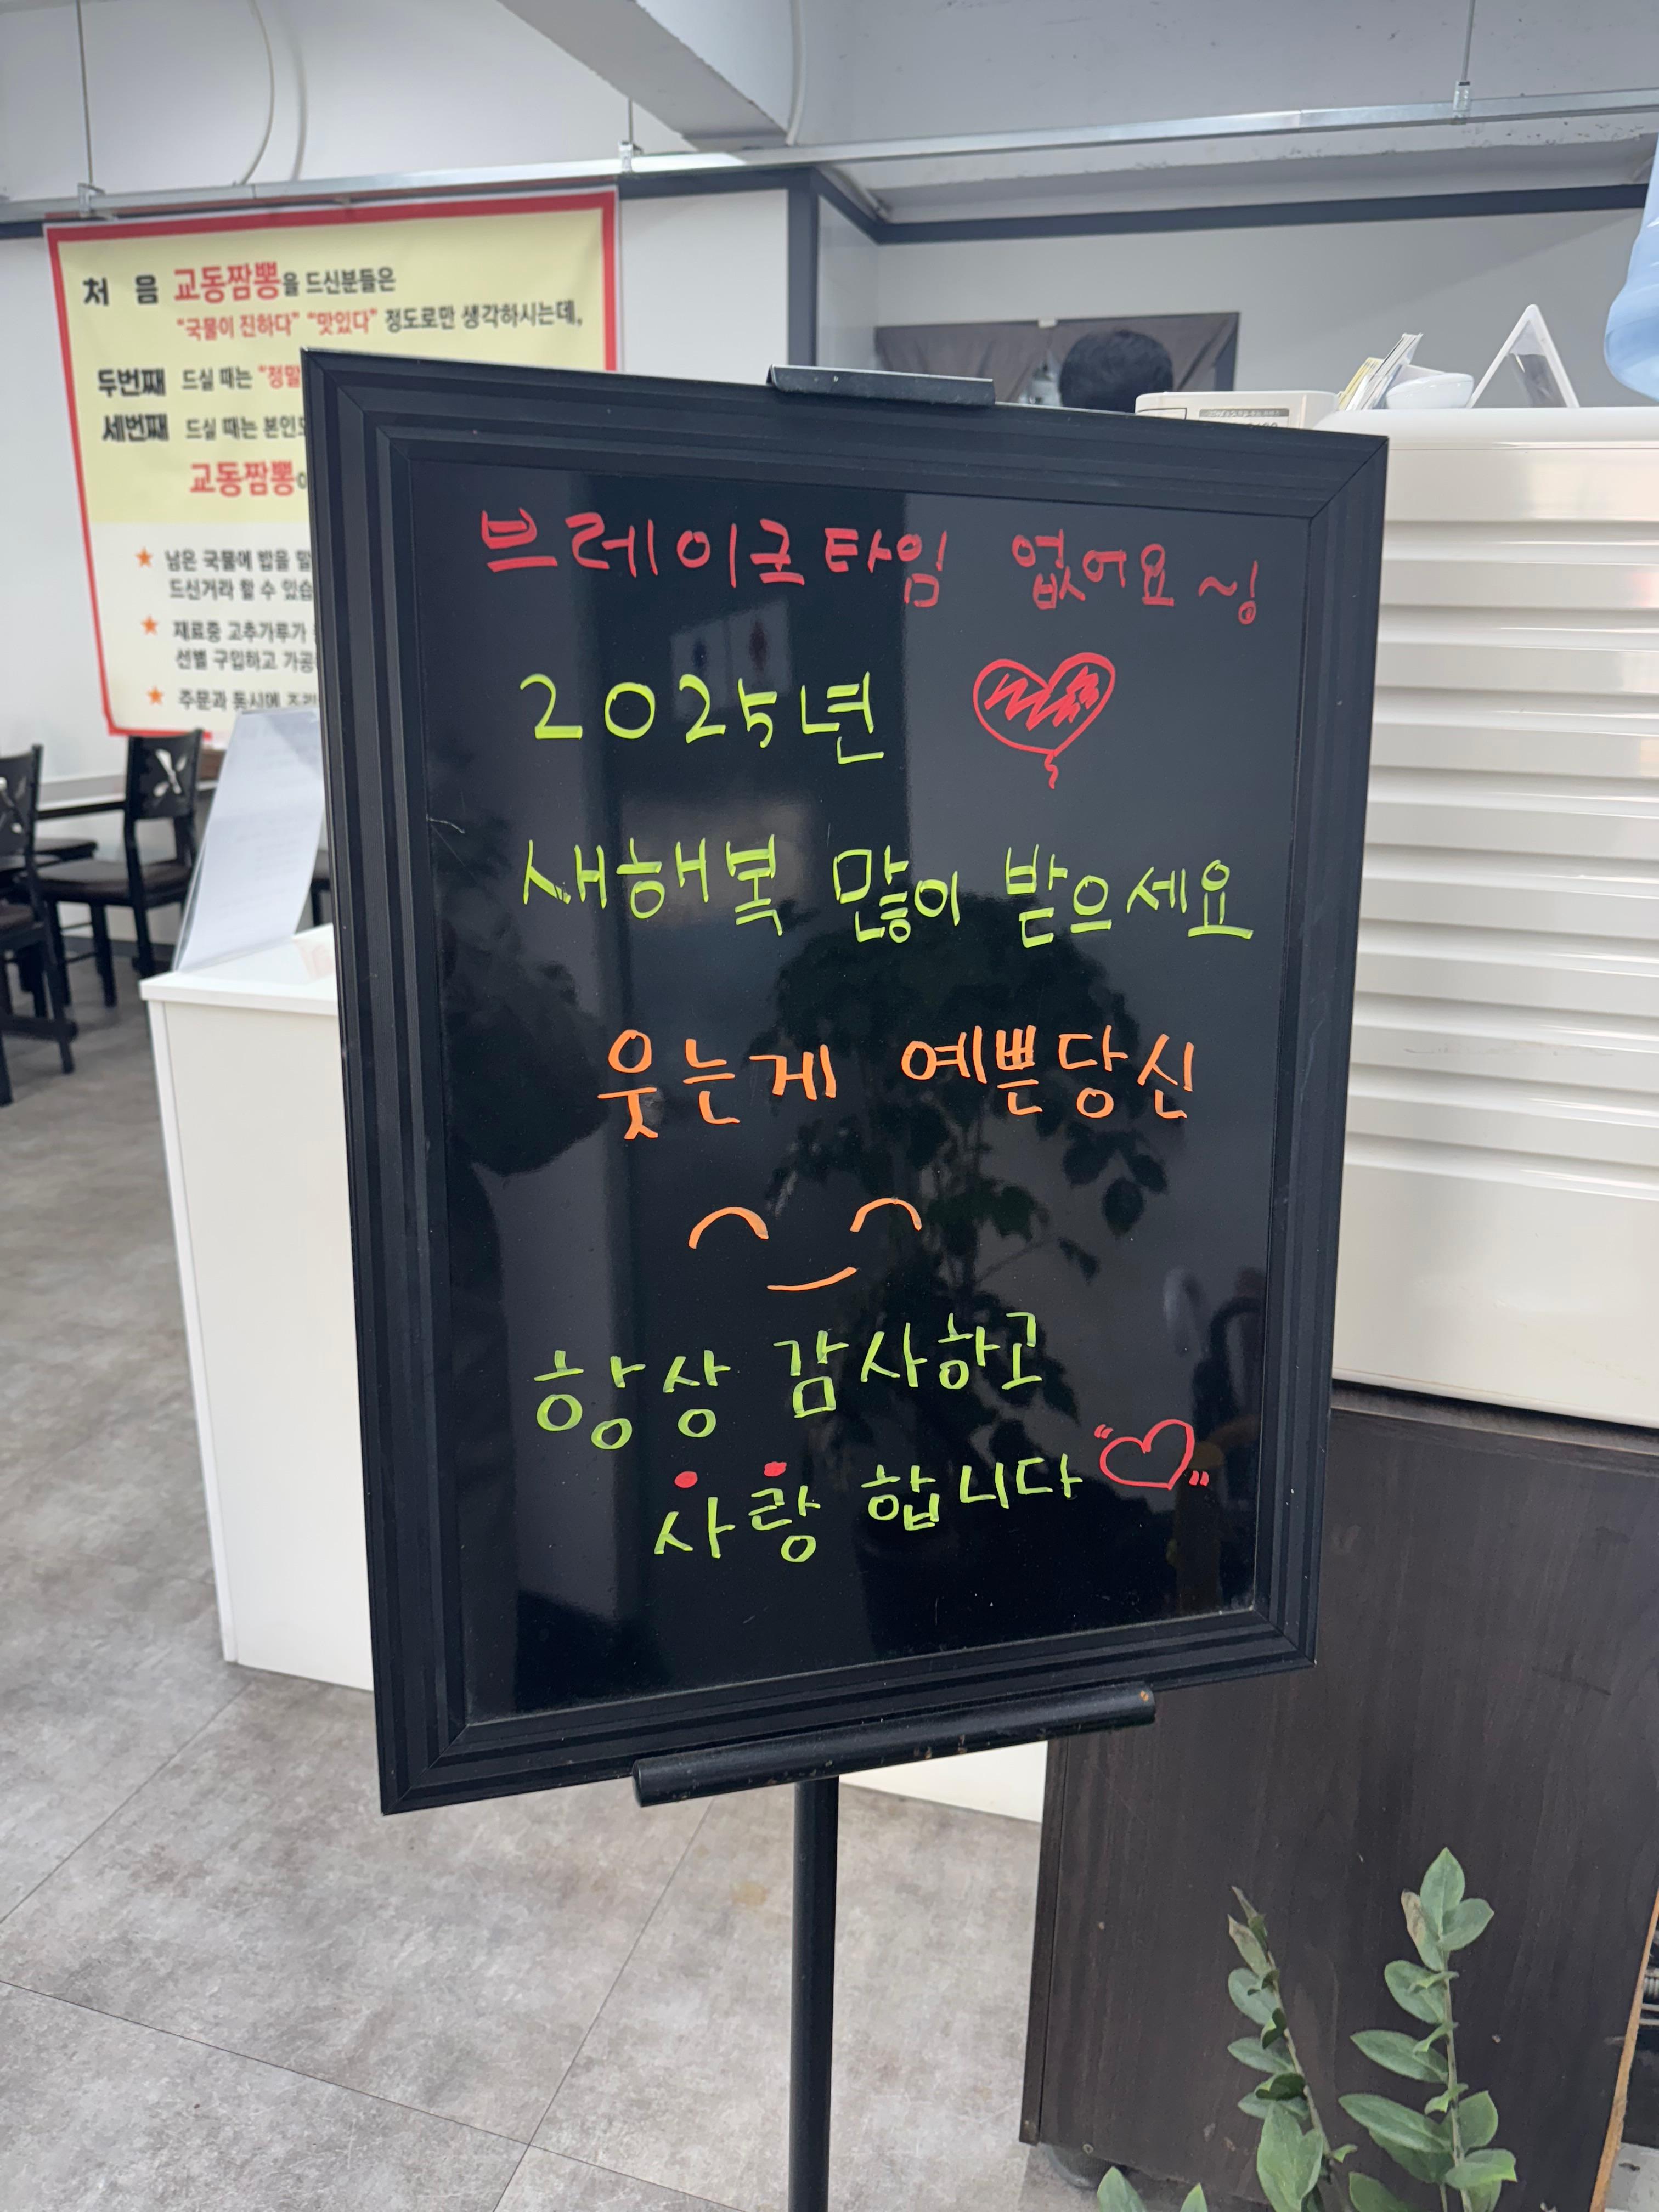 처 음 교동짬뽕을 드신분들은
"국물이 진하다" "맛있다" 정도로만 생각하시는데,
두번째 드실 때는 "정말
세번째 드실 때는 본인도
교동짬뽕이
★ 남은 국물에 밥을 말
드신거라 할 수 있습
★ 재료중 고추가루가
선별 구입하고 가공
★ 주문과 동시에 조리
브레이크타임 없어요~!
2025년 ♡
새해복 많이 받으세요
웃는게 예쁜당신
항상 감사하고
사랑 합니다 "♡"